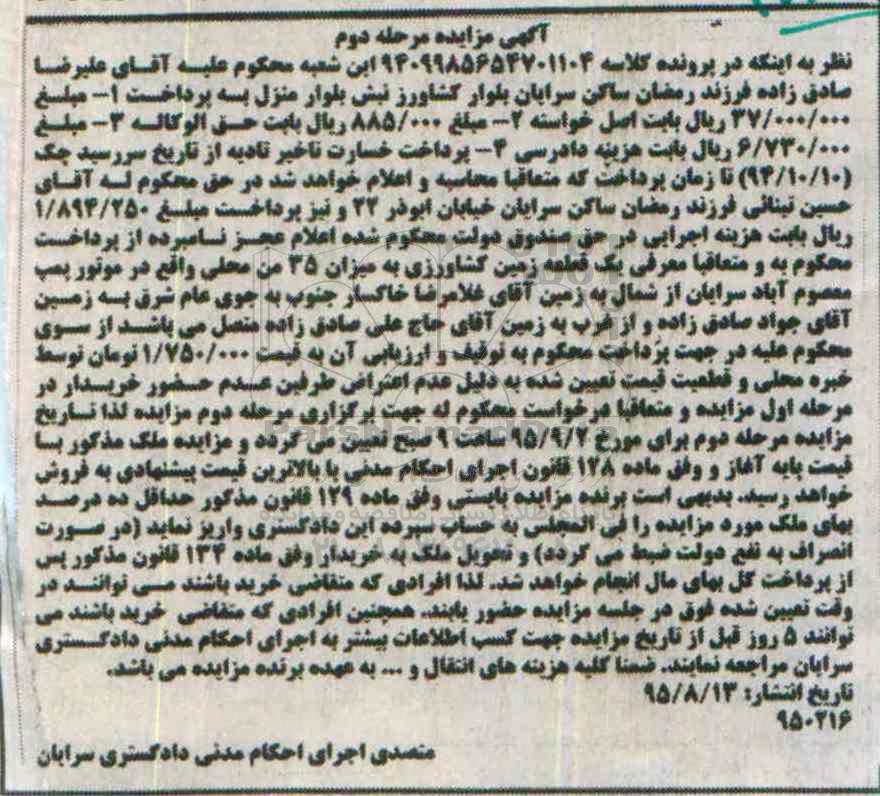 آگهی مزایده مرحله دوم
نظر به اینکه در پرونده کلاسه ۹۴۰۹۹۸۵۶۵۴۷۰۱۱۰۴ این شعبه محکوم علیه آقای علیرضا
صادق زاده فرزند رمضان ساکن سرایان بلوار کشاورز نبش بلوار منزل به پرداخت ۱- مبلغ
۳۷/۰۰۰/۰۰۰ ریال بابت اصل خواسته ۲- مبلغ ۸۸۵/۰۰۰ ریال بابت حق الوکاله ۳- مبلغ
۶/۷۳۰/۰۰۰ ریال بابت هزینه دادرسی ۴- پرداخت خسارت تاخیر تادیه از تاریخ سررسید چک
(۹۴/۱۰/۱۰) تا زمان پرداخت که متعاقبا محاسبه و اعلام خواهد شد در حق محکوم له آقای
حسین تینائی فرزند رمضان ساکن سرایان خیابان ابوذر ۲۲ و نیز پرداخت مبلغ ۱/۸۹۴/۲۵۰
ریال بابت هزینه اجرایی در حق صندوق دولت محکوم شده اعلام عجز نامبرده از پرداخت
محکوم به و متعاقبا معرفی یک قطعه زمین کشاورزی به میزان ۳۵ من محلی واقع در موتور پمپ
معصوم آباد سرایان از شمال به زمین آقای غلامرضا خاکسار جنوب به جوی عام شرق به زمین
آقای جواد صادق زاده و از غرب به زمین آقای حاج علی صادق زاده متصل می باشد از سوی
محکوم علیه در جهت پرداخت محکوم به توقیف و ارزیابی آن به قیمت ۱/۷۵۰/۰۰۰ تومان توسط
خبره محلی و قطعیت قیمت تعیین شده به دلیل عدم اعتراض طرفین عدم حضور خریدار در
مرحله اول مزایده و متعاقبا درخواست محکوم له جهت برگزاری مرحله دوم مزایده لذا تاریخ
مزایده مرحله دوم برای مورخ ۹۵/۹/۲ ساعت ۹ صبح تعیین می گردد و مزایده ملک مذکور با
قیمت پایه آغاز و وفق ماده ۱۲۸ قانون اجرای احکام مدنی با بالاترین قیمت پیشنهادی به فروش
خواهد رسید. بدیهی است برنده مزایده بایستی وفق ماده ۱۲۹ قانون مذکور حداقل ده درصد
بهای ملک مورد مزایده را فی المجلس به حساب سپرده این دادگستری واریز نماید (در صورت
انصراف به نفع دولت ضبط می گردد) و تحویل ملک به خریدار وفق ماده ۱۳۴ قانون مذکور پس
از پرداخت کل بهای مال انجام خواهد شد. لذا افرادی که متقاضی خرید باشند می توانند در
وقت تعیین شده فوق در جلسه مزایده حضور یابند. همچنین افرادی که متقاضی خرید باشند می
توانند ۵ روز قبل از تاریخ مزایده جهت کسب اطلاعات بیشتر به اجرای احکام مدنی دادگستری
سرایان مراجعه نمایند. ضمنا کلیه هزینه های انتقال و ... به عهده برنده مزایده می باشد.
تاریخ انتشار: ۹۵/۸/۱۳
۹۵۰۲۱۶
متصدی اجرای احکام مدنی دادگستری سرایان